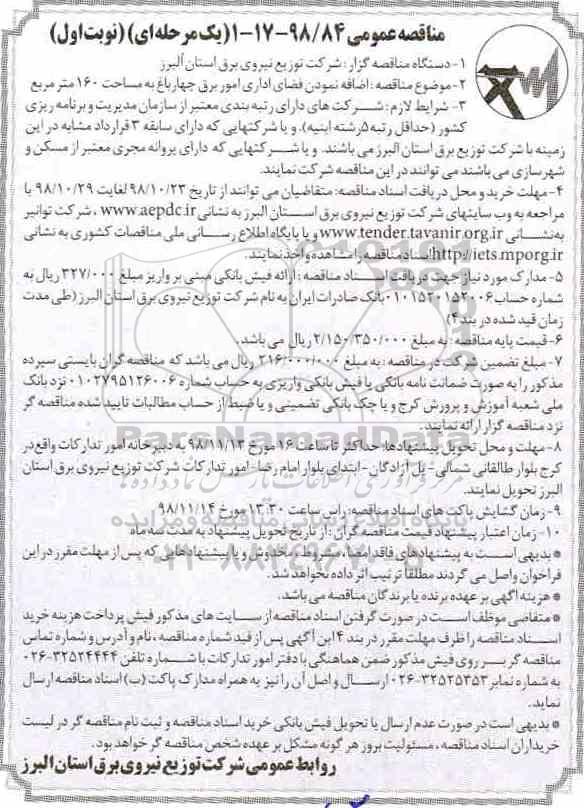 مناقصه عمومی ۹۸/۸۴-۱۷-۱(یک مرحله ای) (نوبت اول)
۱- دستگاه مناقصه گزار: شرکت توزیع نیروی برق استان البرز
۲- موضوع مناقصه: اضافه نمودن فضای اداری امور برق چهارباغ به مساحت ۱۶۰ متر مربع
۳- شرایط لازم: شرکت های دارای رتبه بندی معتبر از سازمان مدیریت و برنامه ریزی
کشور (حداقل رتبه ۵ رشته ابنیه). و یا شرکتهایی که دارای سابقه ۳ قرارداد مشابه در این
زمینه با شرکت توزیع برق استان البرز می باشند. و یا شرکتهایی که دارای پروانه مجری معتبر از مسکن و
شهرسازی می باشند می توانند در این مناقصه شرکت نمایند.
۴- مهلت خرید و محل دریافت اسناد مناقصه: متقاضیان می توانند از تاریخ ۹۸/۱۰/۲۳ لغایت ۹۸/۱۰/۲۹ با
مراجعه به وب سایتهای شرکت توزیع نیروی برق استان البرز به نشانی www.aepdc.ir ، شرکت توانیر
به نشانی www.tender.tavanir.org.ir و یا پایگاه اطلاع رسانی ملی مناقصات کشوری به نشانی
http://iets.mporg.ir اسناد مناقصه را مشاهده و اخذ نمایند.
۵- مدارک مورد نیاز جهت دریافت اسناد مناقصه: ارائه فیش بانکی مبنی بر واریز مبلغ ۳۲۷/۰۰۰ ریال به
شماره حساب ۰۱۰۱۵۲۰۱۵۲۰۰۶ بانک صادرات ایران به نام شرکت توزیع نیروی برق استان البرز (طی مدت
زمان قید شده در بند ۴)
۶- قیمت پایه مناقصه: به مبلغ ۲/۱۵۰/۳۵۰/۰۰۰ ریال می باشد.
۷- مبلغ تضمین شرکت در مناقصه: به مبلغ ۲۱۶/۰۰۰/۰۰۰ ریال می باشد که مناقصه گران بایستی سپرده
مذکور را به صورت ضمانت نامه بانکی یا فیش بانکی واریزی به حساب شماره ۰۱۰۲۷۹۵۱۲۶۰۰۶ نزد بانک
ملی شعبه آموزش و پرورش کرج و یا چک بانکی تضمینی و یا ضبط از حساب مطالبات تایید شده مناقصه گر
نزد مناقصه گزار ارائه نمایند.
۸- مهلت و محل تحویل پیشنهادها: حداکثر تا ساعت ۱۶ مورخ ۹۸/۱۱/۱۳ به دبیرخانه امور تدارکات واقع در
کرج بلوار طالقانی شمالی- پل آزادگان- ابتدای بلوار امام رضا- امور تدارکات شرکت توزیع نیروی برق استان
البرز تحویل نمایند.
۹- زمان گشایش پاکت های اسناد مناقصه: راس ساعت ۱۳:۳۰ مورخ ۹۸/۱۱/۱۴
۱۰- زمان اعتبار پیشنهاد قیمت مناقصه گران: از تاریخ تحویل پیشنهاد به مدت سه ماه
* بدیهی است به پیشنهادهای فاقد امضاء، مشروط، مخدوش و یا پیشنهادهایی که پس از مهلت مقرر در این
فراخوان واصل می گردند مطلقا ترتیب اثر داده نخواهد شد.
* هزینه آگهی بر عهده برنده یا برندگان مناقصه می باشد.
* متقاضی موظف است در صورت گرفتن اسناد مناقصه از سایت های مذکور فیش پرداخت هزینه خرید
اسناد مناقصه را ظرف مهلت مقرر در بند ۴ این آگهی پس از قید شماره مناقصه، نام و آدرس و شماره تماس
مناقصه گر بر روی فیش مذکور ضمن هماهنگی با دفتر امور تدارکات با شماره تلفن ۳۲۵۲۴۴۴۴-۰۲۶
به شماره نمابر ۳۲۵۲۵۳۵۳-۰۲۶ ارسال و اصل آن را نیز به همراه مدارک پاکت (ب) اسناد مناقصه ارسال
نماید.
* بدیهی است در صورت عدم ارسال یا تحویل فیش بانکی خرید اسناد مناقصه و ثبت نام مناقصه گر در لیست
خریداران اسناد مناقصه، مسئولیت بروز هر گونه مشکل بر عهده شخص مناقصه گر خواهد بود.
روابط عمومی شرکت توزیع نیروی برق استان البرز
ParsNamadData
پایگاه اطلاع رسانی مناقصه و مزایده